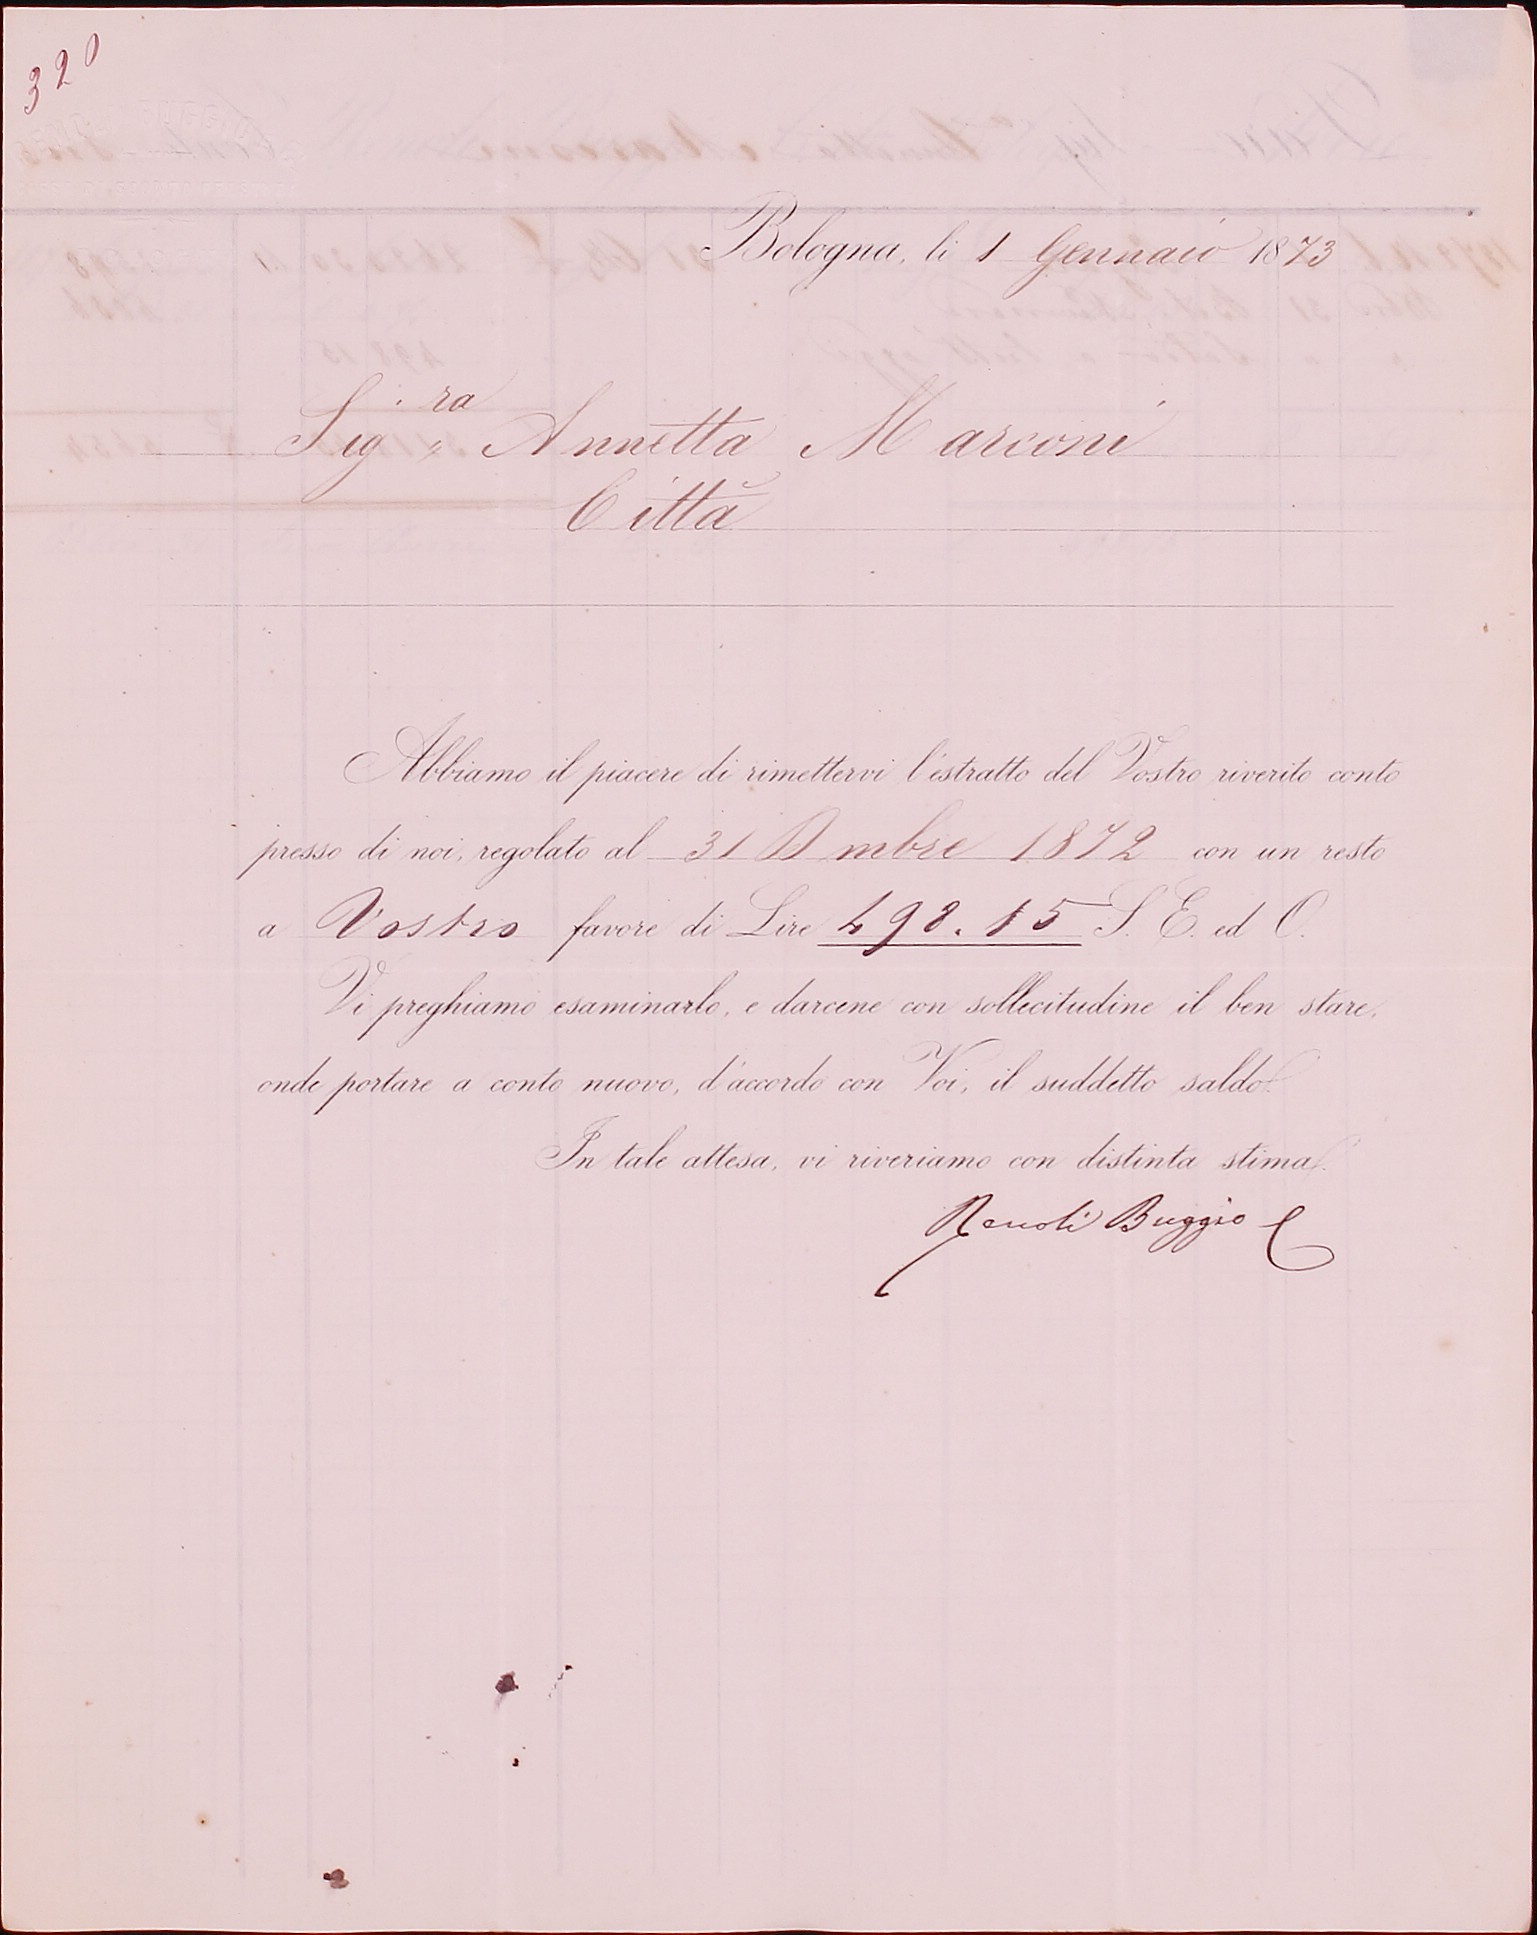 320
Bologna, li 1 Gennaio 1873
Sig.ra Annetta Marconi
Città
Abbiamo il piacere di rimettervi l'estratto del Vostro riverito conto
presso di noi, regolato al 31 Dmbre 1872 con un resto
a Vostro favore di Lire 498.15 S. E. ed O.
Vi preghiamo esaminarlo, e darcene con sollecitudine il ben stare,
onde portare a conto nuovo, d'accordo con Voi, il suddetto saldo.
In tale attesa, vi riveriamo con distinta stima.
Renoli Buggio C